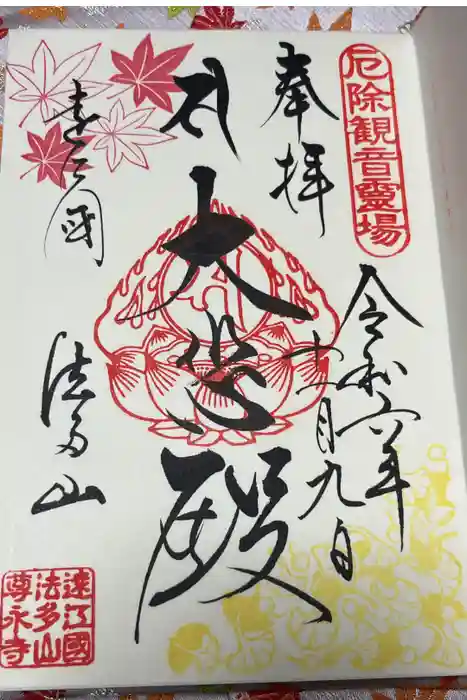 厄除観音霊場
奉拝
令和六年
十一月九日
大悲殿
遠江国
法多山
遠江國
法多山
尊永寺